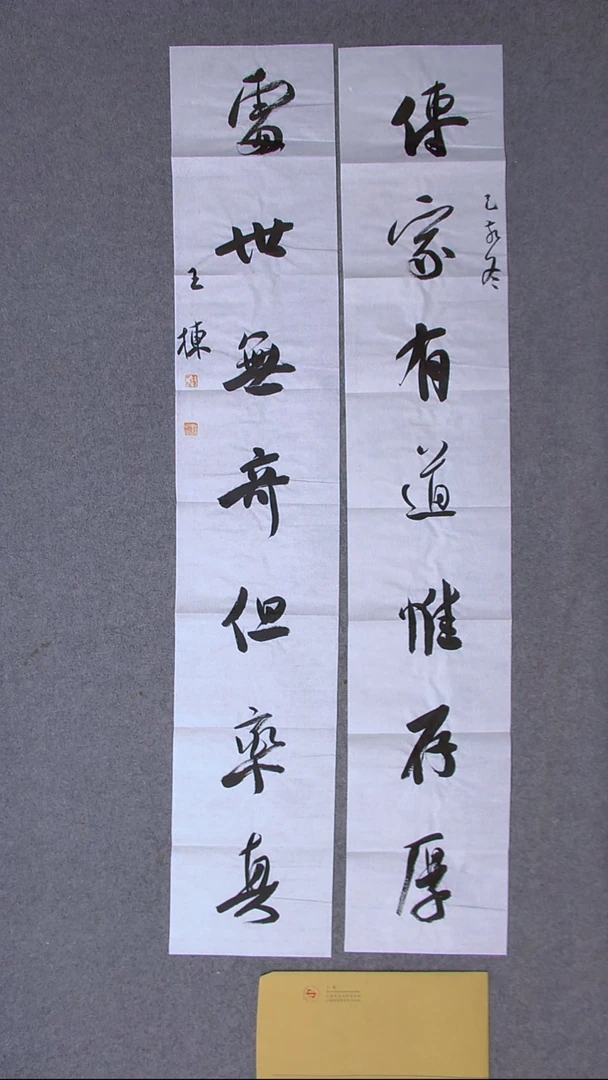 傳家有道惟存厚
乙亥冬
處世無奇但率真
王棟